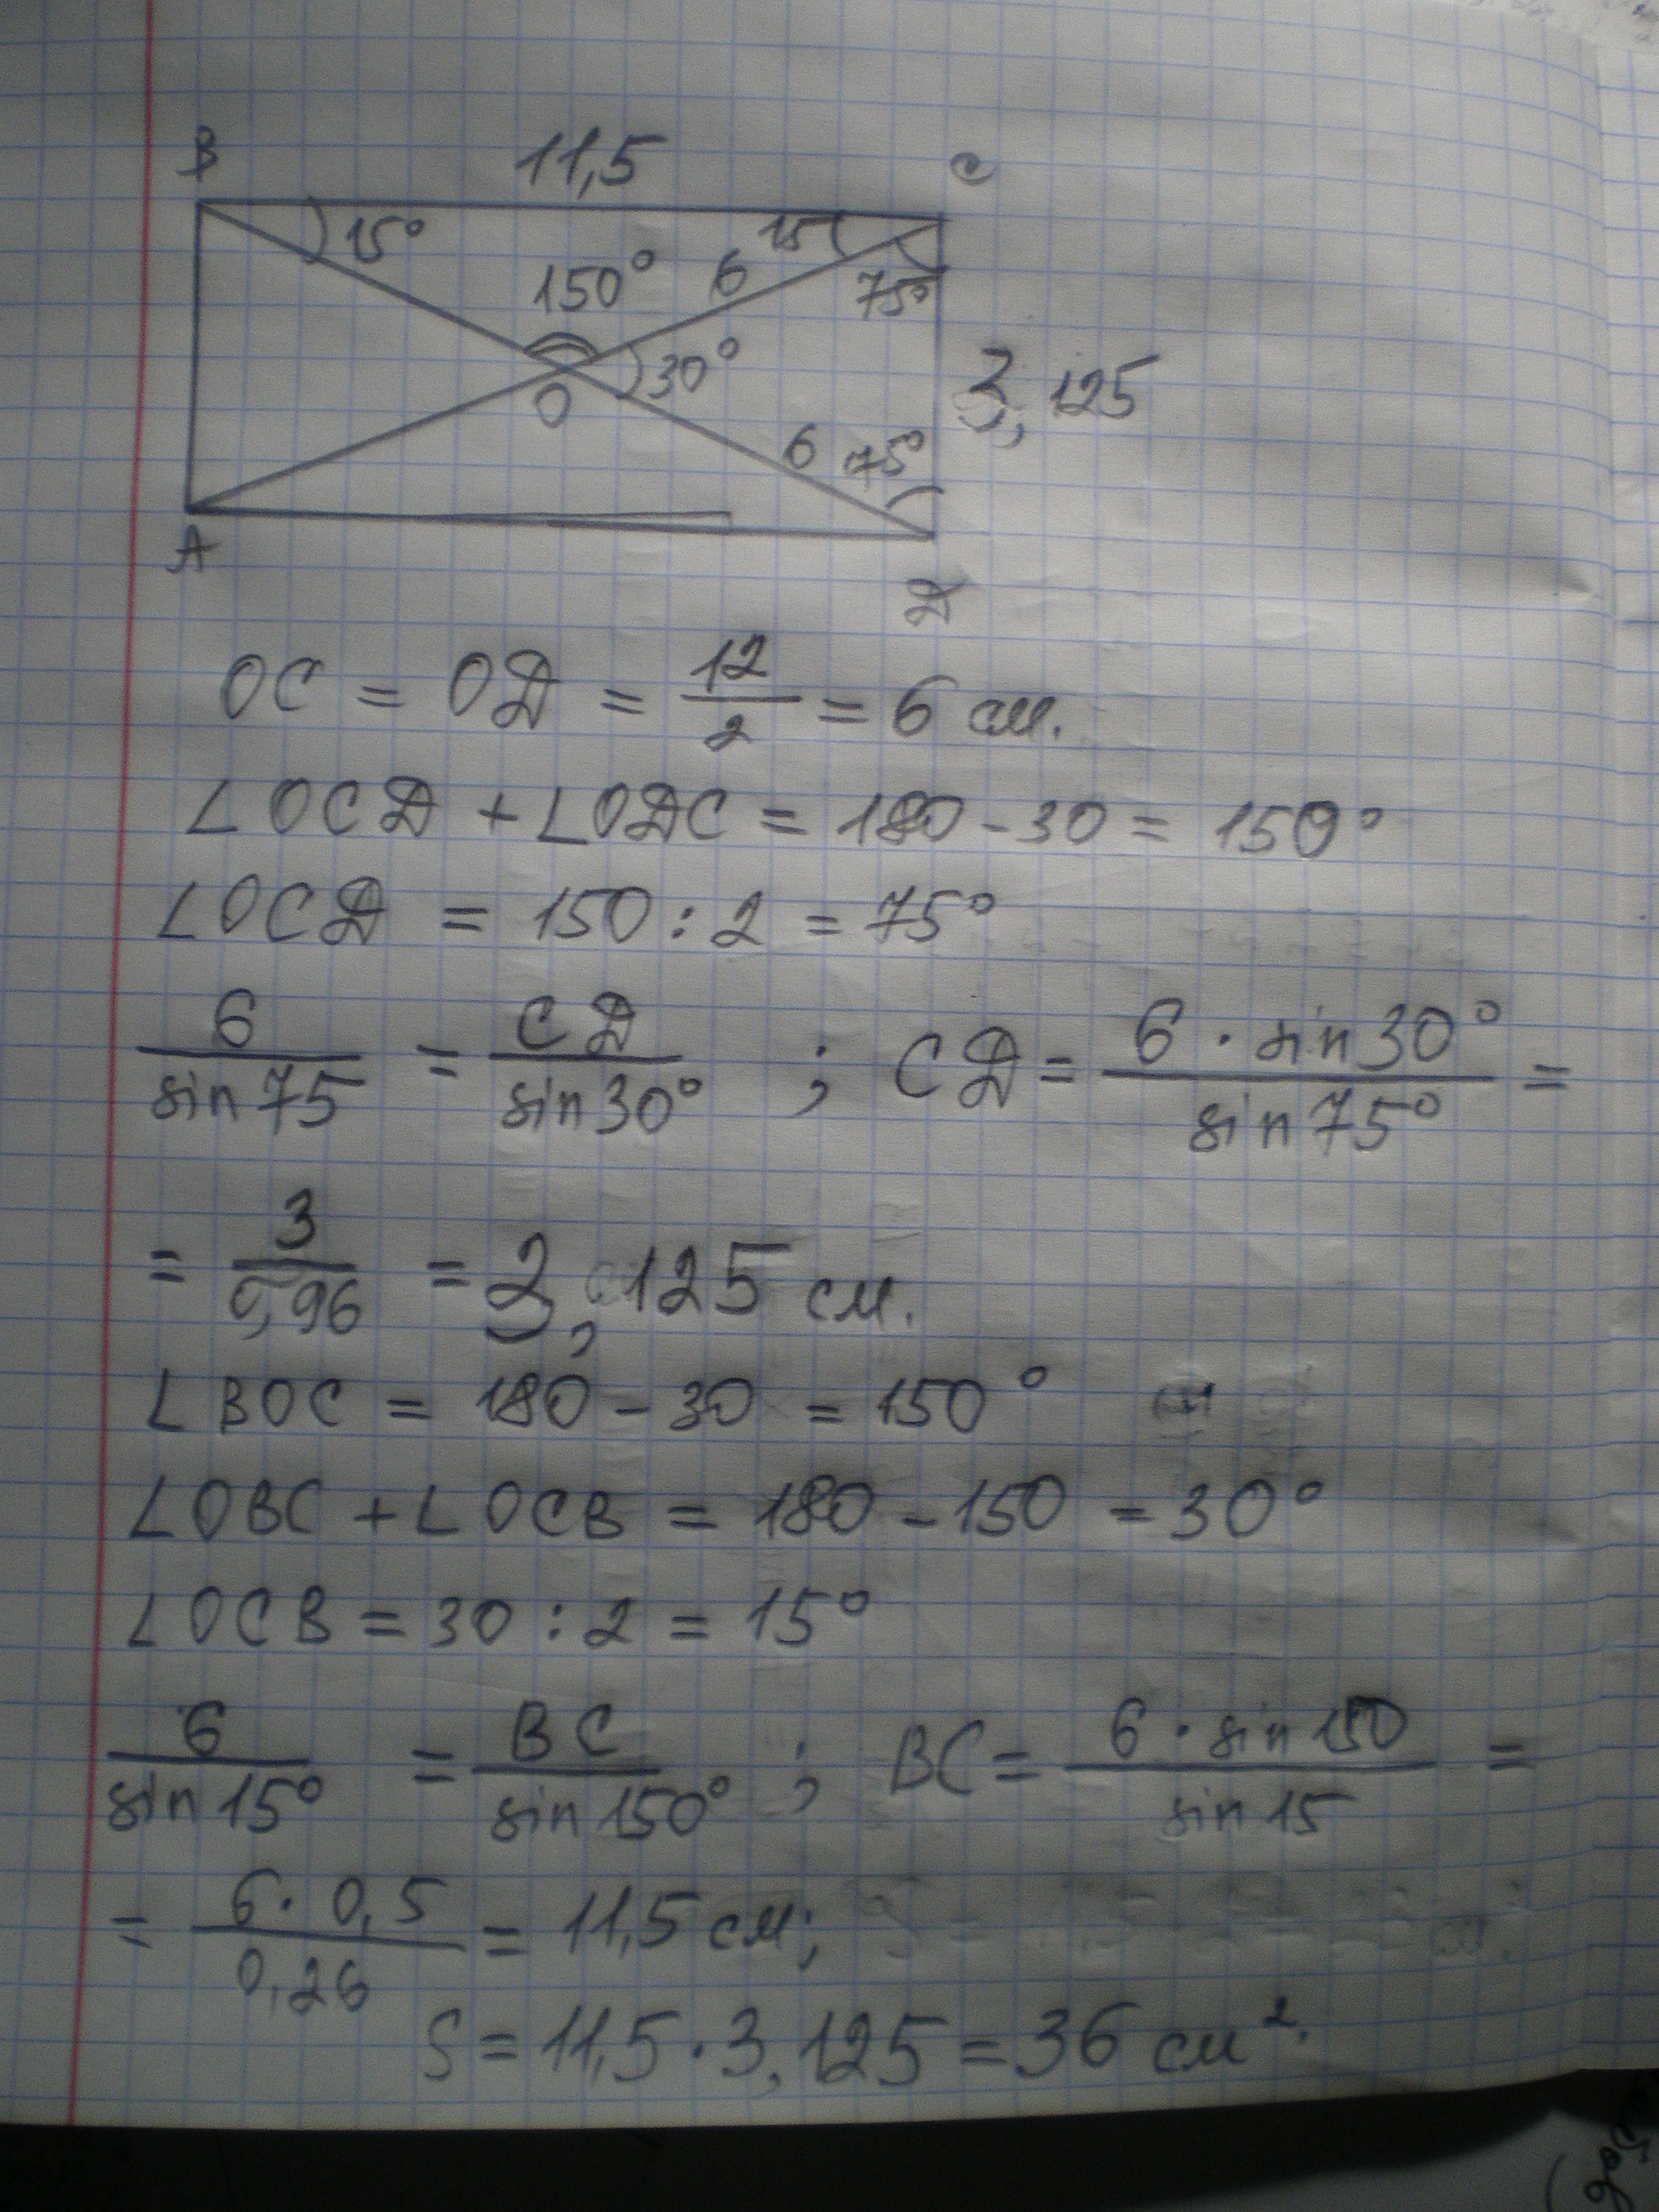 B 11,5 C
15° 15
150° 6 75°
30° 3,125
O
6 75°
A
D
OC = OD = 12/2 = 6 см.
∠OCD + ∠ODC = 180 - 30 = 150°
∠OCD = 150 : 2 = 75°
6/sin75 = CD/sin30° ; CD = 6 · sin30°/sin75° =
= 3/0,96 = 3,125 см.
∠BOC = 180 - 30 = 150°
∠OBC + ∠OCB = 180 - 150 = 30°
∠OCB = 30 : 2 = 15°
6/sin15° = BC/sin150° ; BC = 6 · sin150/sin15 =
= 6 · 0,5/0,26 = 11,5 см;
S = 11,5 · 3,125 = 36 см².